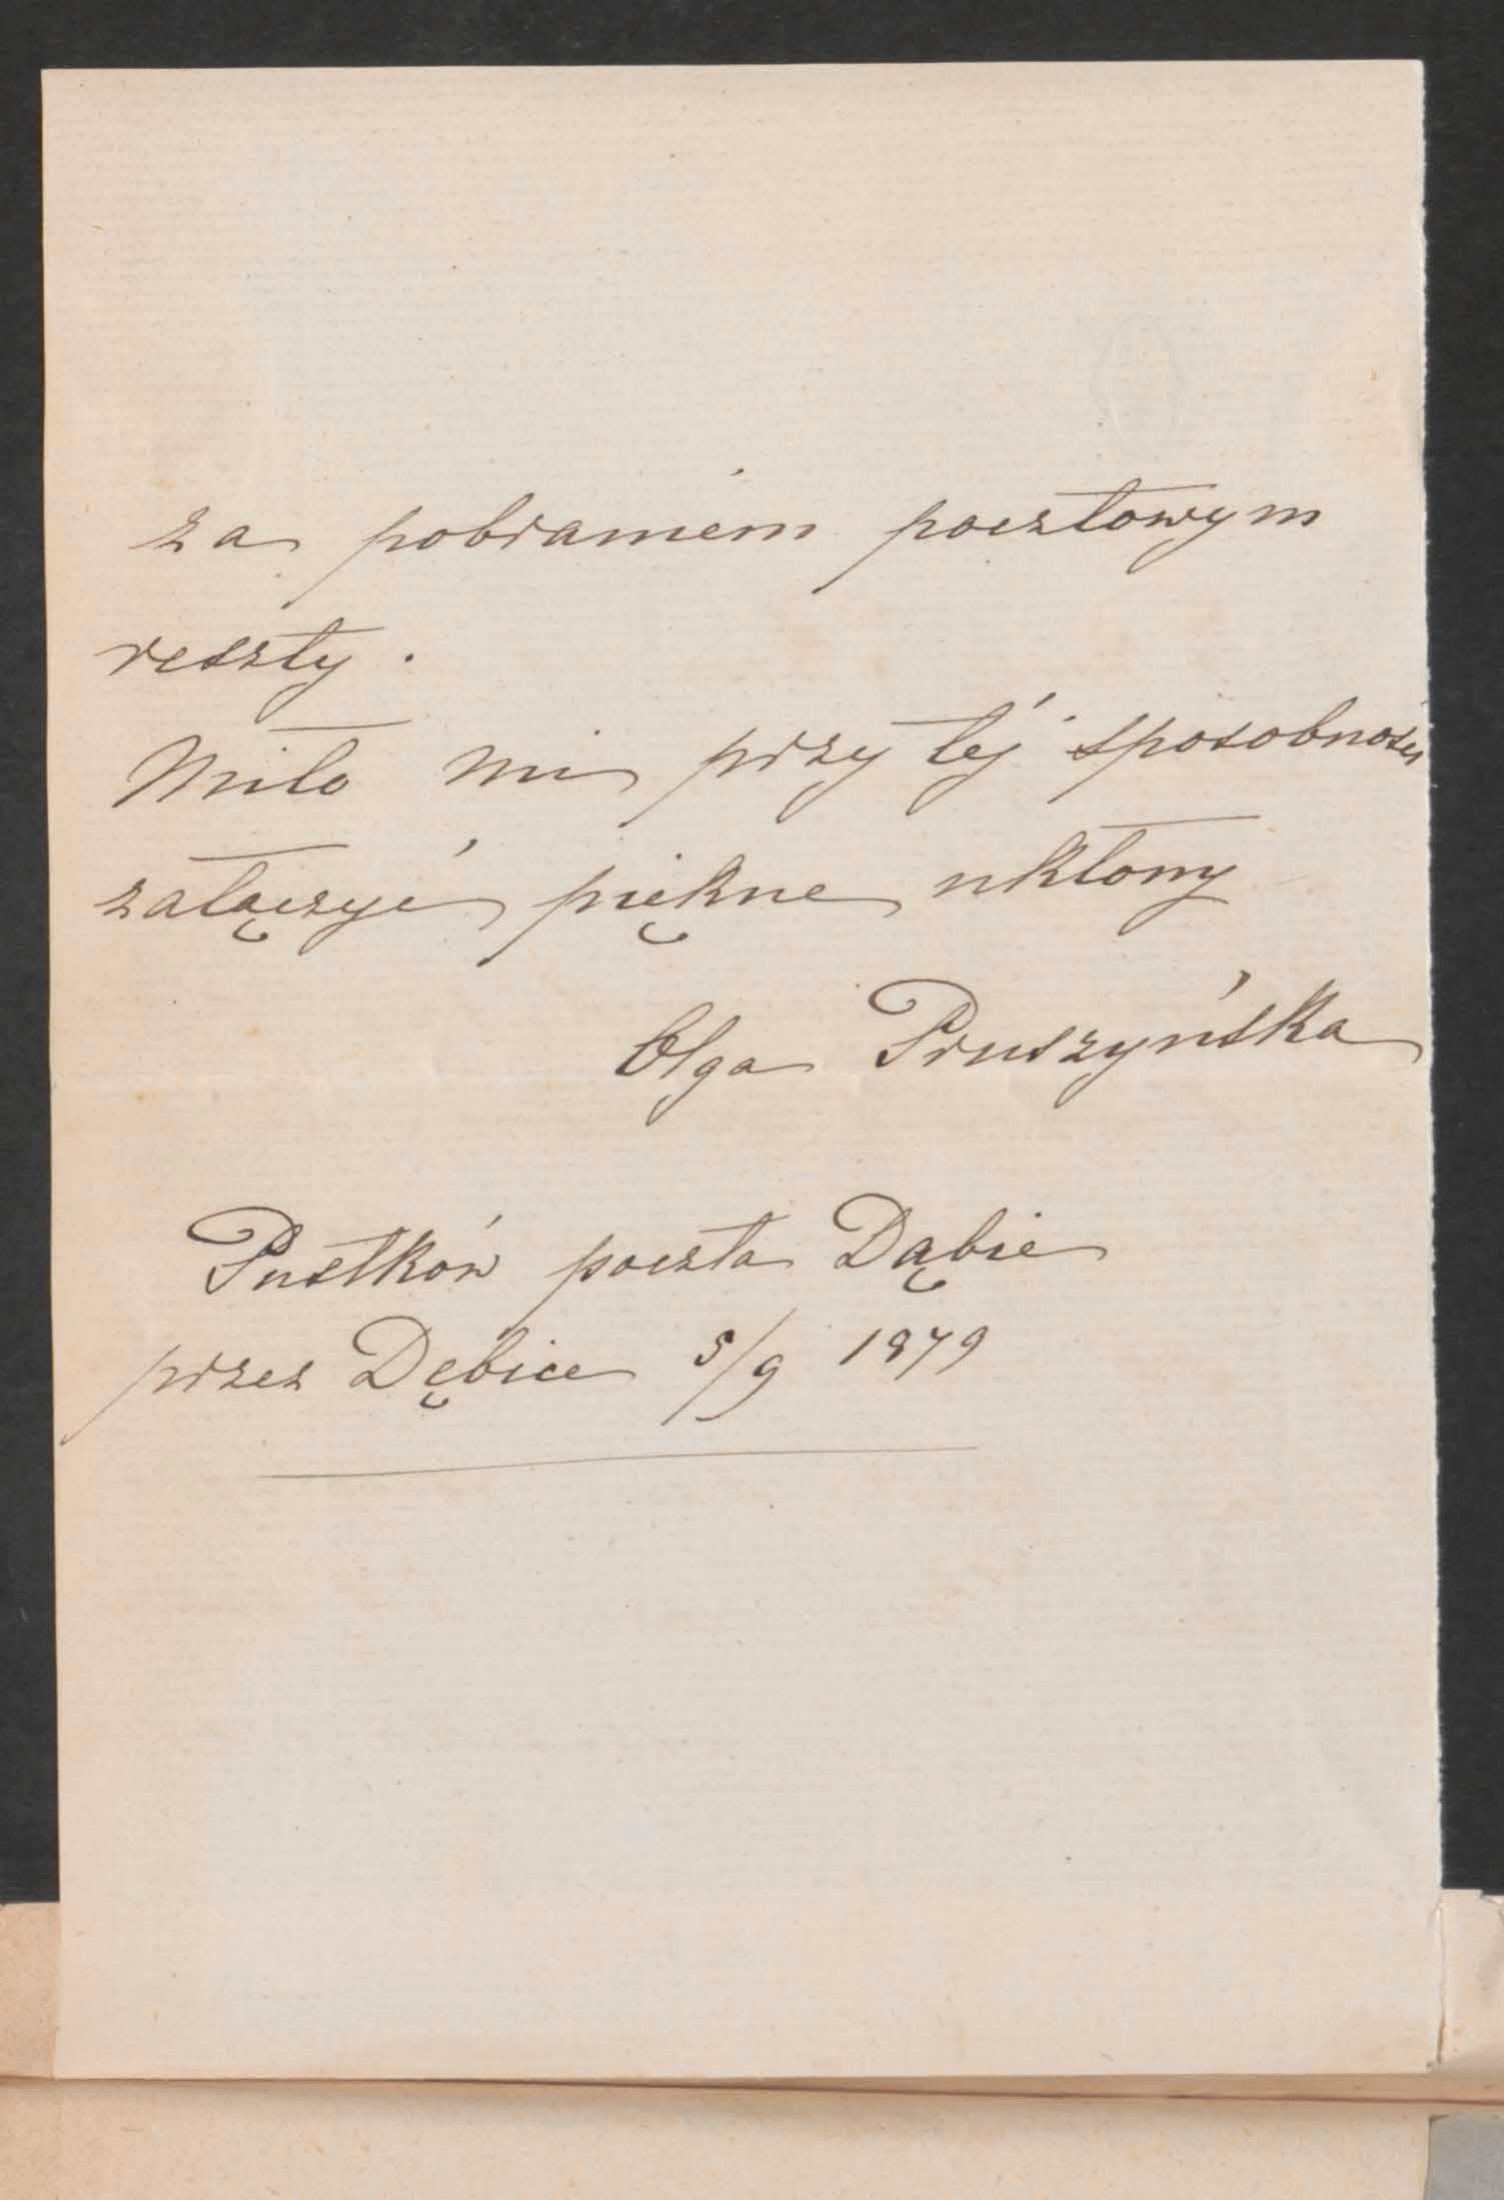 za pobraniem pocztowym
reszty.
Miło mi przy téj sposobności
załączyć piękne ukłony
Olga Pruszyńska
Pustków poczta Dąbie
przez Dębice 5/9 1879